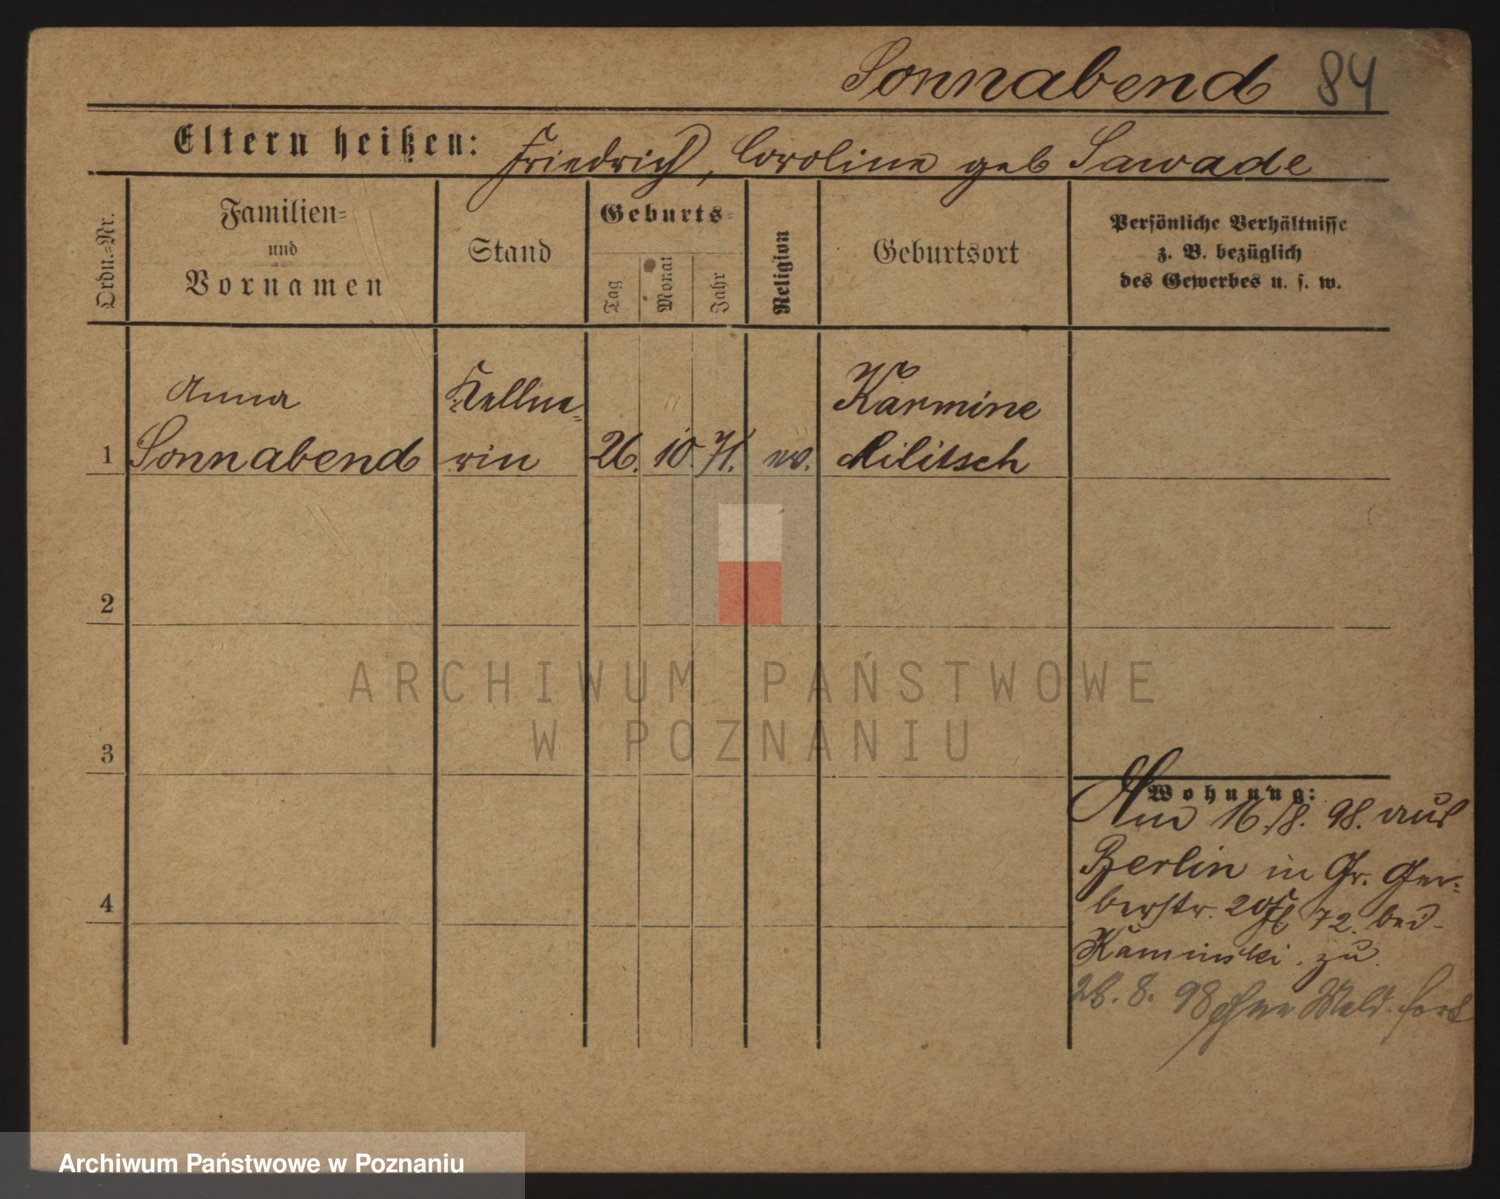 Sonnabend 84
Eltern heißen: Friedrich, Caroline geb Sawade
Ordn.-Nr.
Familien-
und
Vornamen
Stand
Geburts-
Tag
Monat
Jahr
Religion
Geburtsort
Persönliche Verhältnisse
z. B. bezüglich
des Gewerbes u. s. w.
Anna Kellne- Karmine
1 Sonnabend rin 26. 10. 71. ev. Militsch
2
3
4
ARCHIWUM PAŃSTWOWE
W POZNANIU
Wohnung:
Am 16./8. 98. aus
Berlin in Gr. Ger-
berstr. 20 72. bei
Kaminski zu
28. 8. 98 ohne Meld. fort
Archiwum Państwowe w Poznaniu